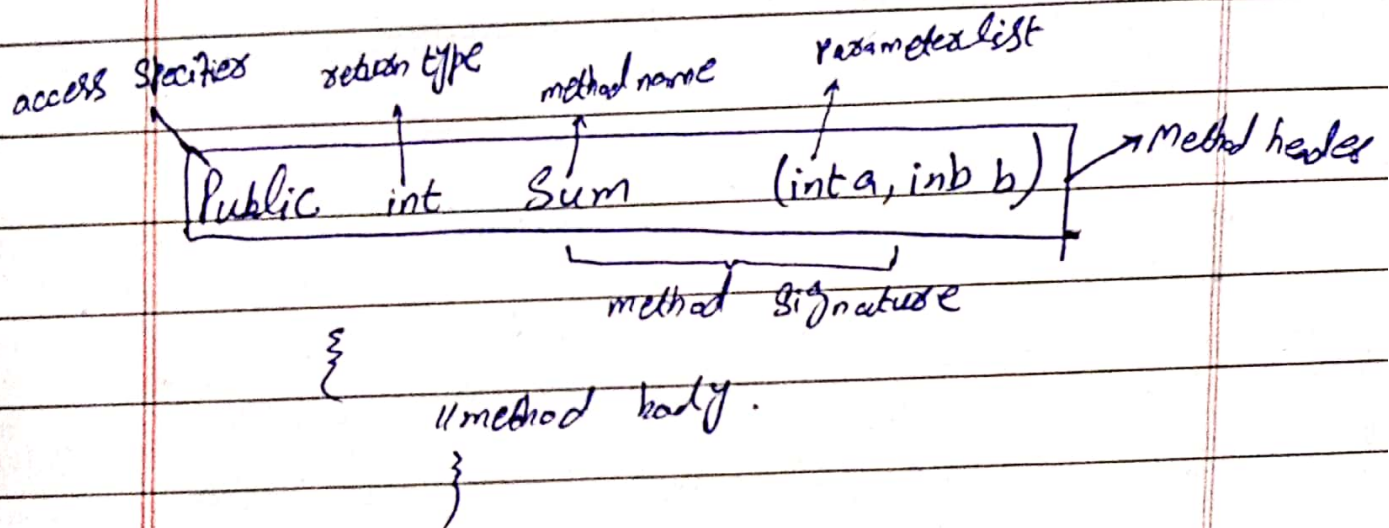 access Specifier return type method name Parameter list
Public int Sum (int a, inb b) Method header
method Signature
{
//method body.
}